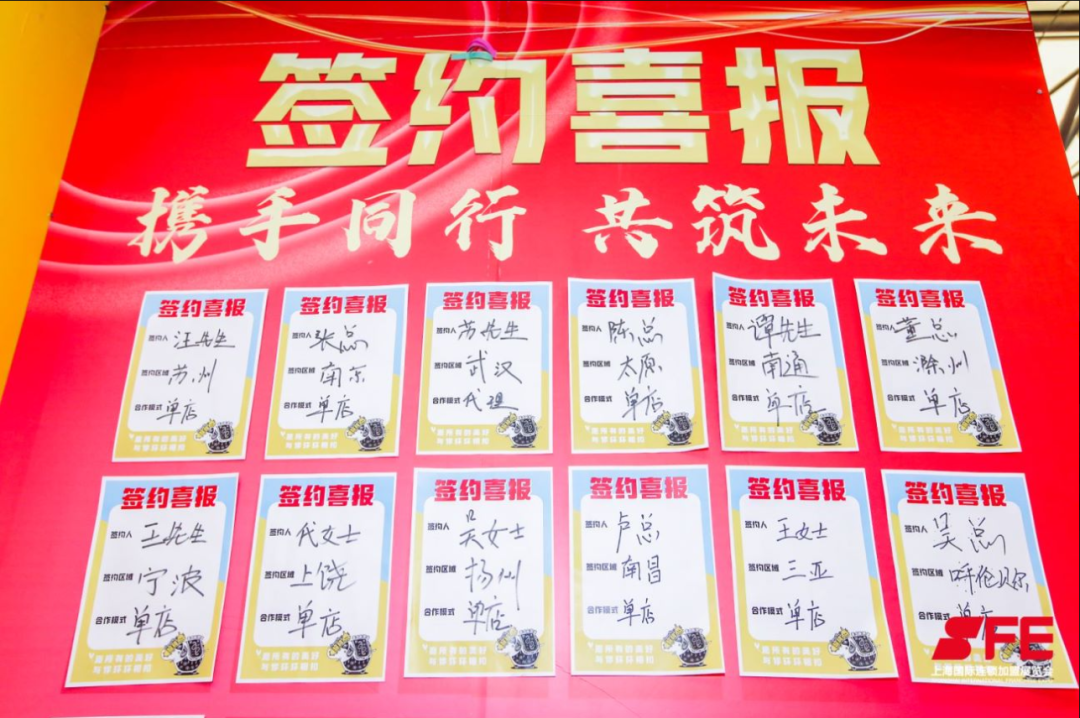 签约喜报
携手同行 共筑未来
签约喜报
签约人 汪先生
签约区域 苏州
合作模式 单店
签约喜报
签约人 张总
签约区域 南京
合作模式 单店
签约喜报
签约人 苏先生
签约区域 武汉
合作模式 代理
签约喜报
签约人 陈总
签约区域 太原
合作模式 单店
签约喜报
签约人 谭先生
签约区域 南通
合作模式 单店
签约喜报
签约人 董总
签约区域 滁州
合作模式 单店
签约喜报
签约人 王先生
签约区域 宁波
合作模式 单店
签约喜报
签约人 代女士
签约区域 上饶
合作模式 单店
签约喜报
签约人 吴女士
签约区域 扬州
合作模式 单店
签约喜报
签约人 卢总
签约区域 南昌
合作模式 单店
签约喜报
签约人 王女士
签约区域 三亚
合作模式 单店
签约喜报
签约人 吴总
签约区域 呼伦贝尔
合作模式 单店
SFE
上海国际连锁加盟展览会